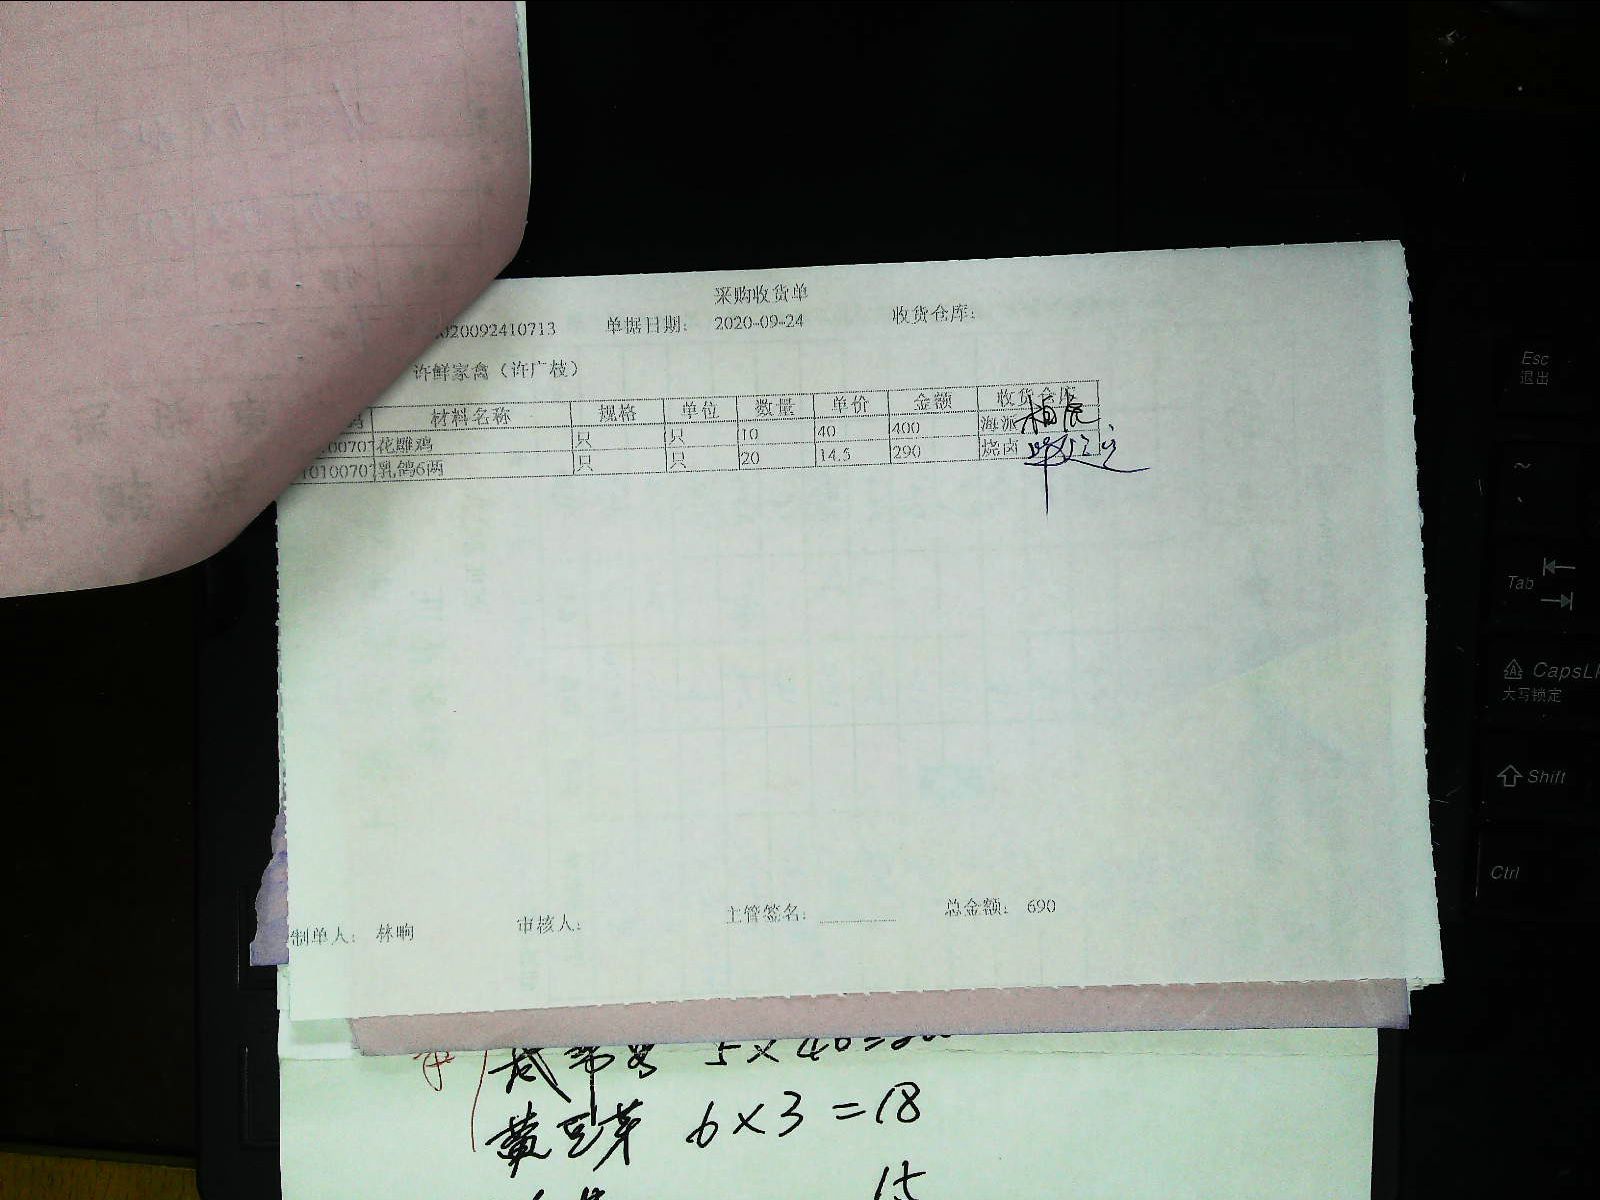 采购收货单
020092410713 单据日期: 2020-09-24 收货仓库:
许鲜家禽（许广枝）
材料名称 规格 单位 数量 单价 金额 收货仓库
00707 花雕鸡 只 只 10 40 400 海派
10100707 乳鸽6两 只 只 20 14.5 290 烧卤
制单人: 林响 审核人: 主管签名: 总金额: 690
5×40=200
黄豆芽 6×3=18
15
Esc
退出
~
Tab
CapsL
大写锁定
Shift
Ctrl